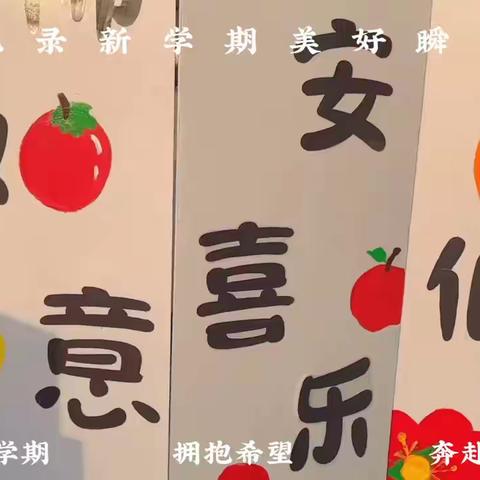 录新学期美好瞬
意
安
喜
乐
学期
拥抱希望
奔赴